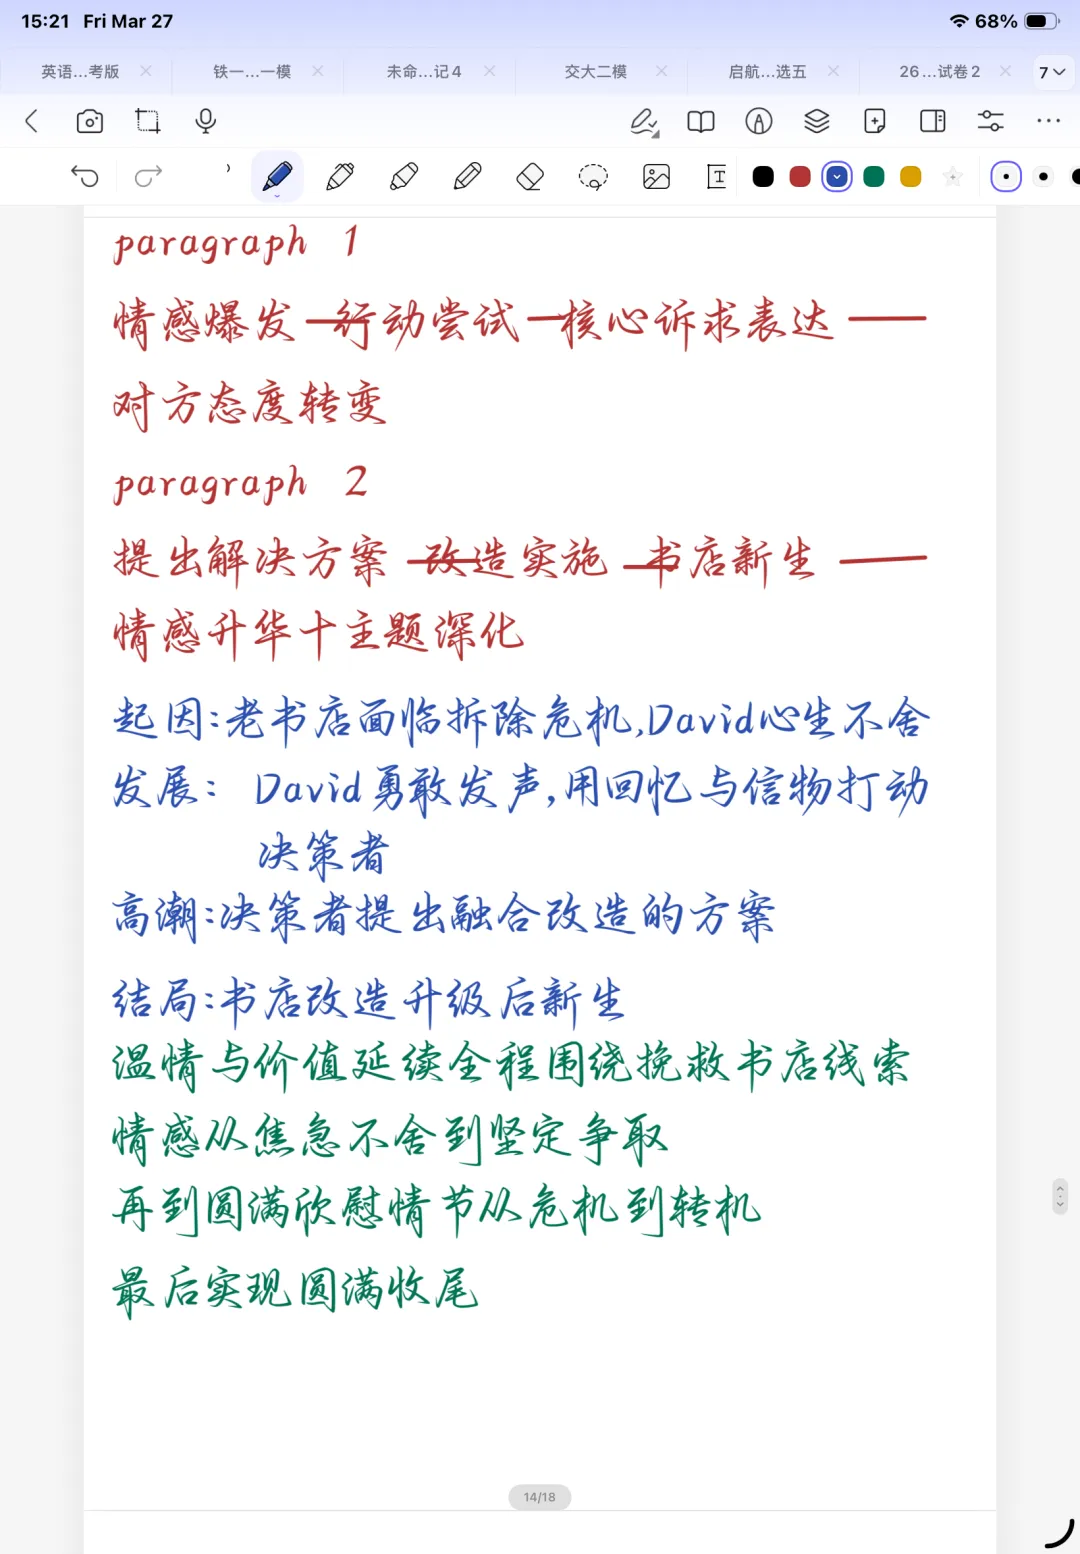 15:21 Fri Mar 27 68%
英语...考版 铁一...一模 未命...记4 交大二模 启航...选五 26...试卷2 7
paragraph 1
情感爆发—行动尝试—核心诉求表达——
对方态度转变
paragraph 2
提出解决方案—改造实施—书店新生——
情感升华十主题深化
起因:老书店面临拆除危机,David心生不舍
发展: David勇敢发声,用回忆与信物打动
决策者
高潮:决策者提出融合改造的方案
结局:书店改造升级后新生
温情与价值延续全程围绕挽救书店线索
情感从焦急不舍到坚定争取
再到圆满欣慰情节从危机到转机
最后实现圆满收尾
14/18